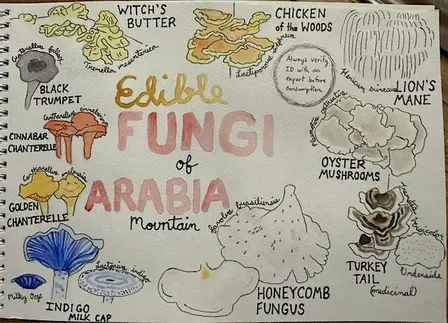 WITCH'S
BUTTER
Tremella mesenterica
CHICKEN
of the WOODS
Laetiporus
Always verify
ID with an
expert before
consumption.
Hericium erinaceus
LION'S
MANE
fallax
BLACK
TRUMPET
Edible
FUNGI
of
ARABIA
Mountain
CINNABAR
CHANTERELLE
OYSTER
MUSHROOMS
GOLDEN
CHANTERELLE
Favolus brasiliensis
Trametes versicolor
Underside
TURKEY
TAIL
(medicinal)
Milky Ooze
Lactarius indigo
INDIGO
MILK CAP
HONEYCOMB
FUNGUS